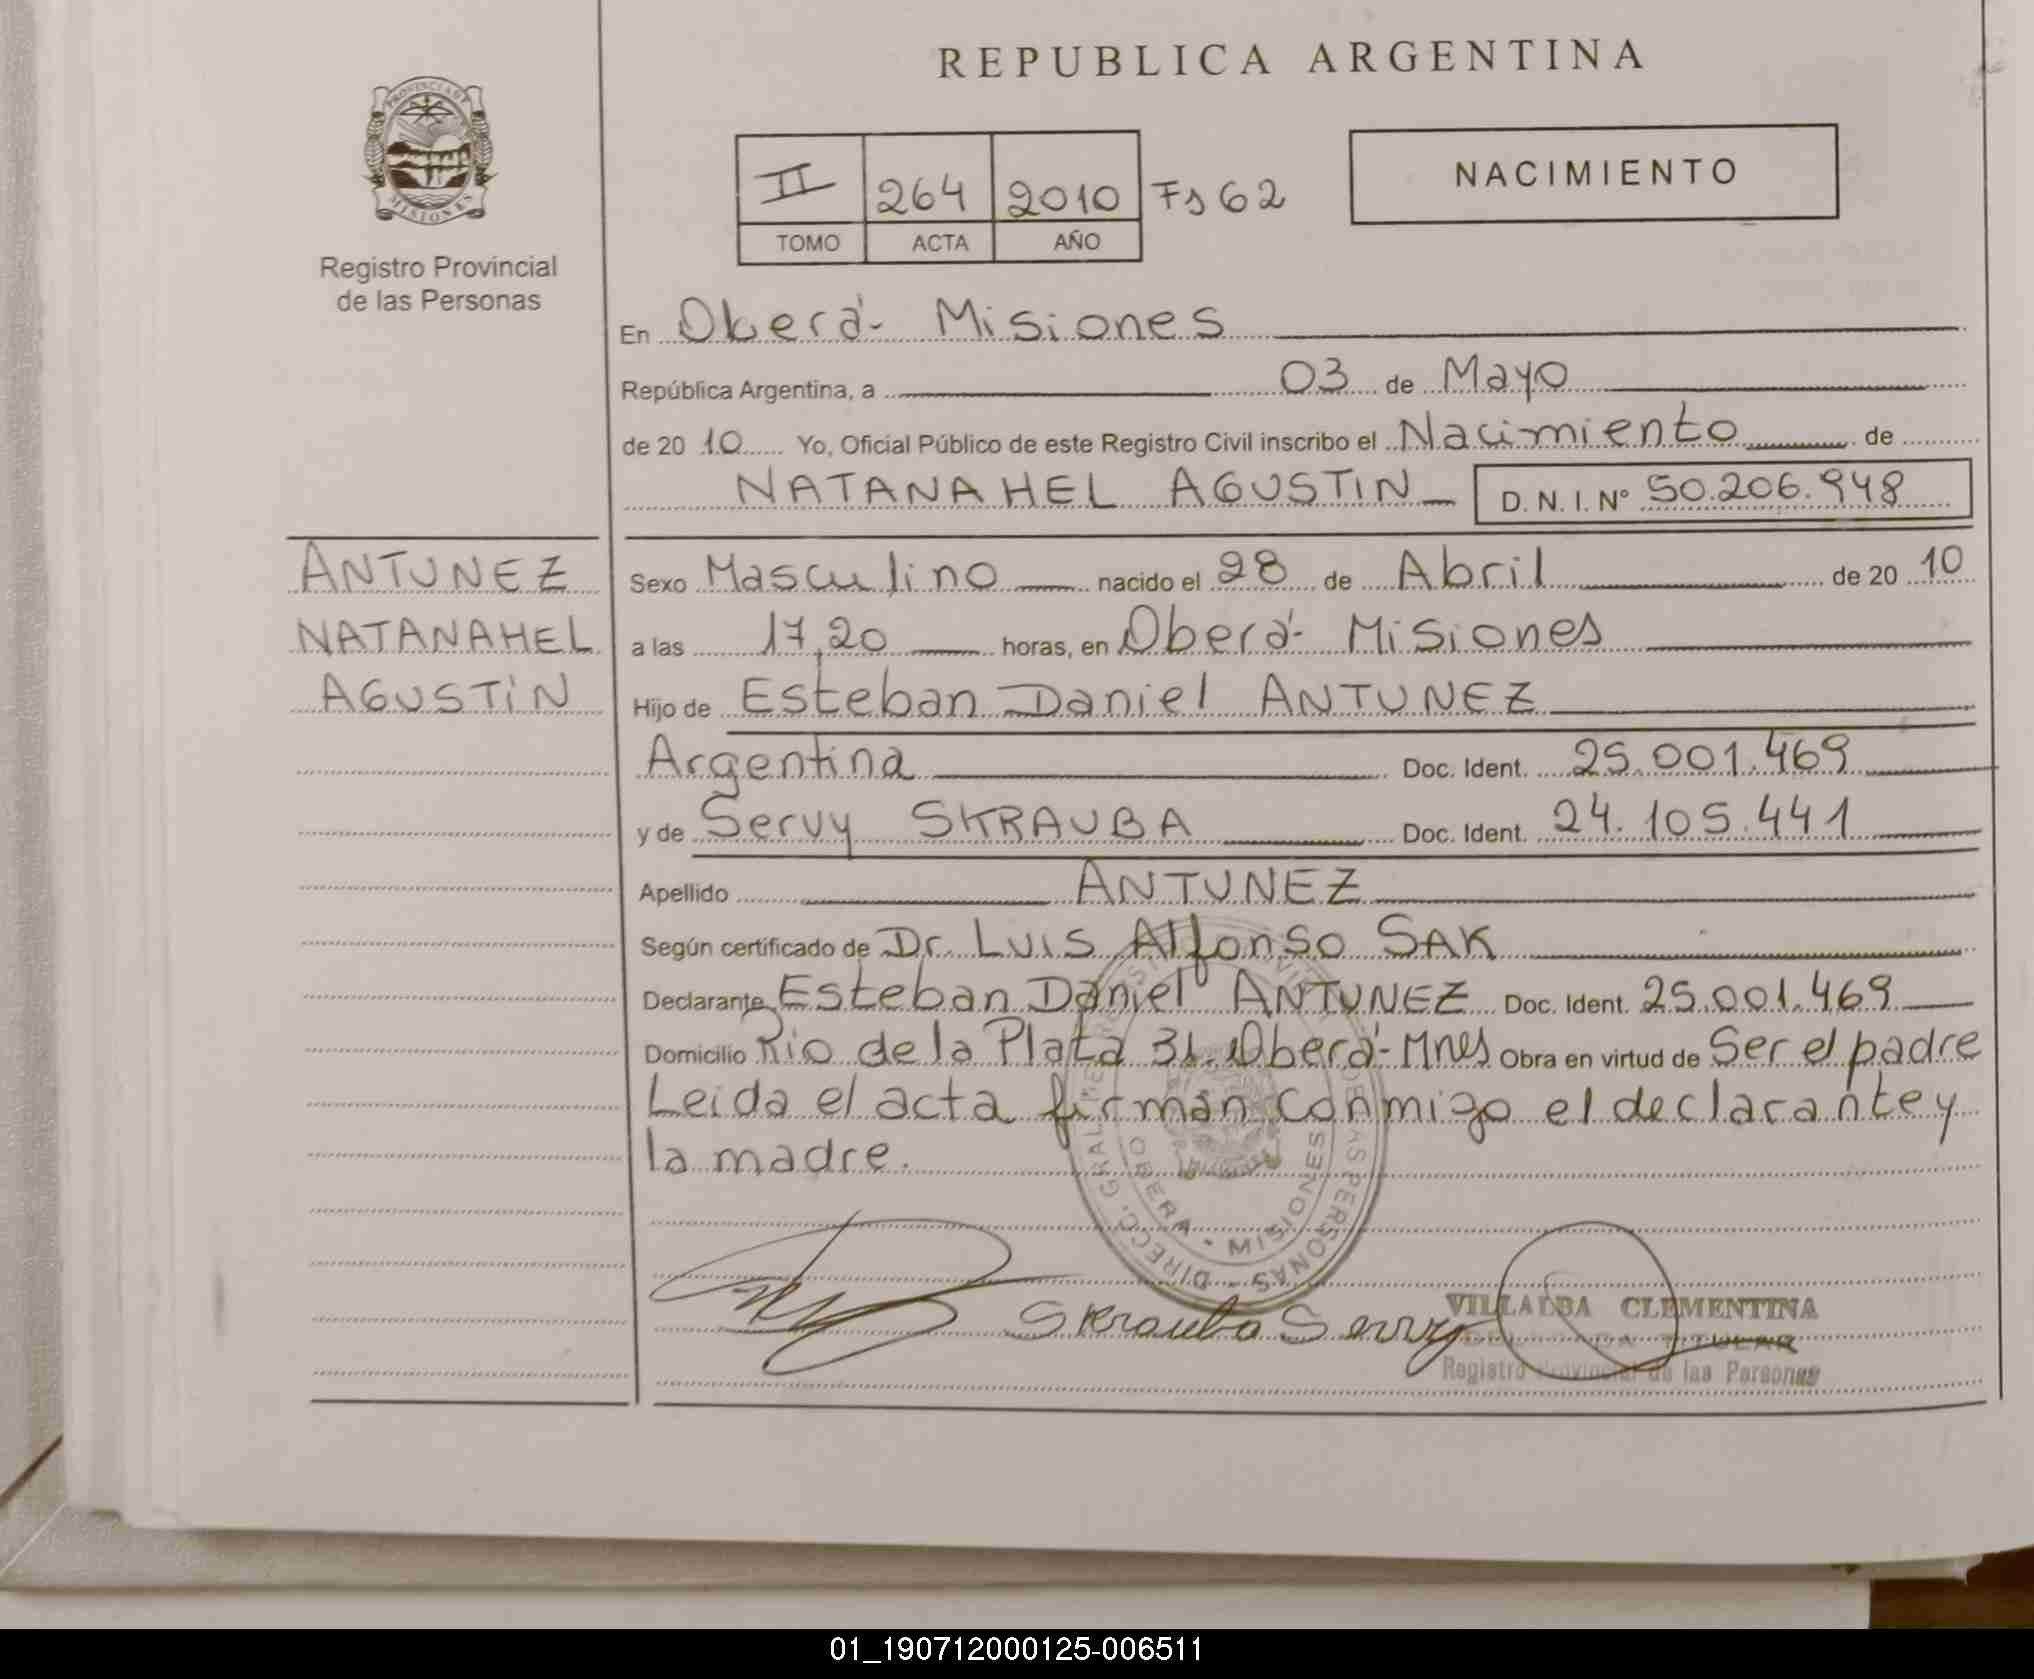 REPUBLICA ARGENTINA
PROVINCIA DE MISIONES
Registro Provincial
de las Personas
II 264 2010 Fs 62
TOMO ACTA AÑO
NACIMIENTO
En Oberá- Misiones
República Argentina, a 03 de Mayo
de 20 10 Yo, Oficial Público de este Registro Civil inscribo el Nacimiento de
NATANAHEL AGUSTIN D. N. I. Nº 50.206.948
ANTUNEZ
NATANAHEL
AGUSTIN
Sexo Masculino nacido el 28 de Abril de 20 10
a las 17,20 horas, en Oberá- Misiones
Hijo de Esteban Daniel ANTUNEZ
Argentina Doc. Ident. 25.001.469
y de Servy SKRAUBA Doc. Ident. 24.105.441
Apellido ANTUNEZ
Según certificado de Dr. LUIS Alfonso SAK
Declarante Esteban Daniel ANTUNEZ Doc. Ident. 25.001.469
Domicilio Rio de la Plata 31. Oberá- Mnes Obra en virtud de Ser el padre
Leida el acta firman conmigo el declarante y
la madre.
OBERA - MISIONES
DIRECC. GRAL DE LAS PERSONAS
Skrauba Servy
VILLALBA CLEMENTINA
DELEGADA TITULAR
Registro Provincial de las Personas
01_190712000125-006511